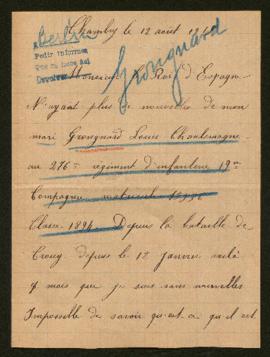 Chamby le 12 août 19
Berlin
Pedir informes
Devolver
Grongnard
Monsieur le Roi d'Espagne
N'ayant plus de nouvelles de mon
mari Grongnard Louis Charlemagne
au 276me régiment d'infanterie 19me
Compagnie matricule
Classe 1894 Depuis la bataille de
Crouy depuis le 12 Janvier voilà
mois que je suis sans nouvelles
Impossible de savoir qu'est ce qu'il est